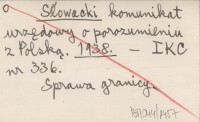 o Słowacki komunikat
urzędowy o porozumieniu
z Polską. 1938. — IKC
nr 336.
Sprawa granicy.